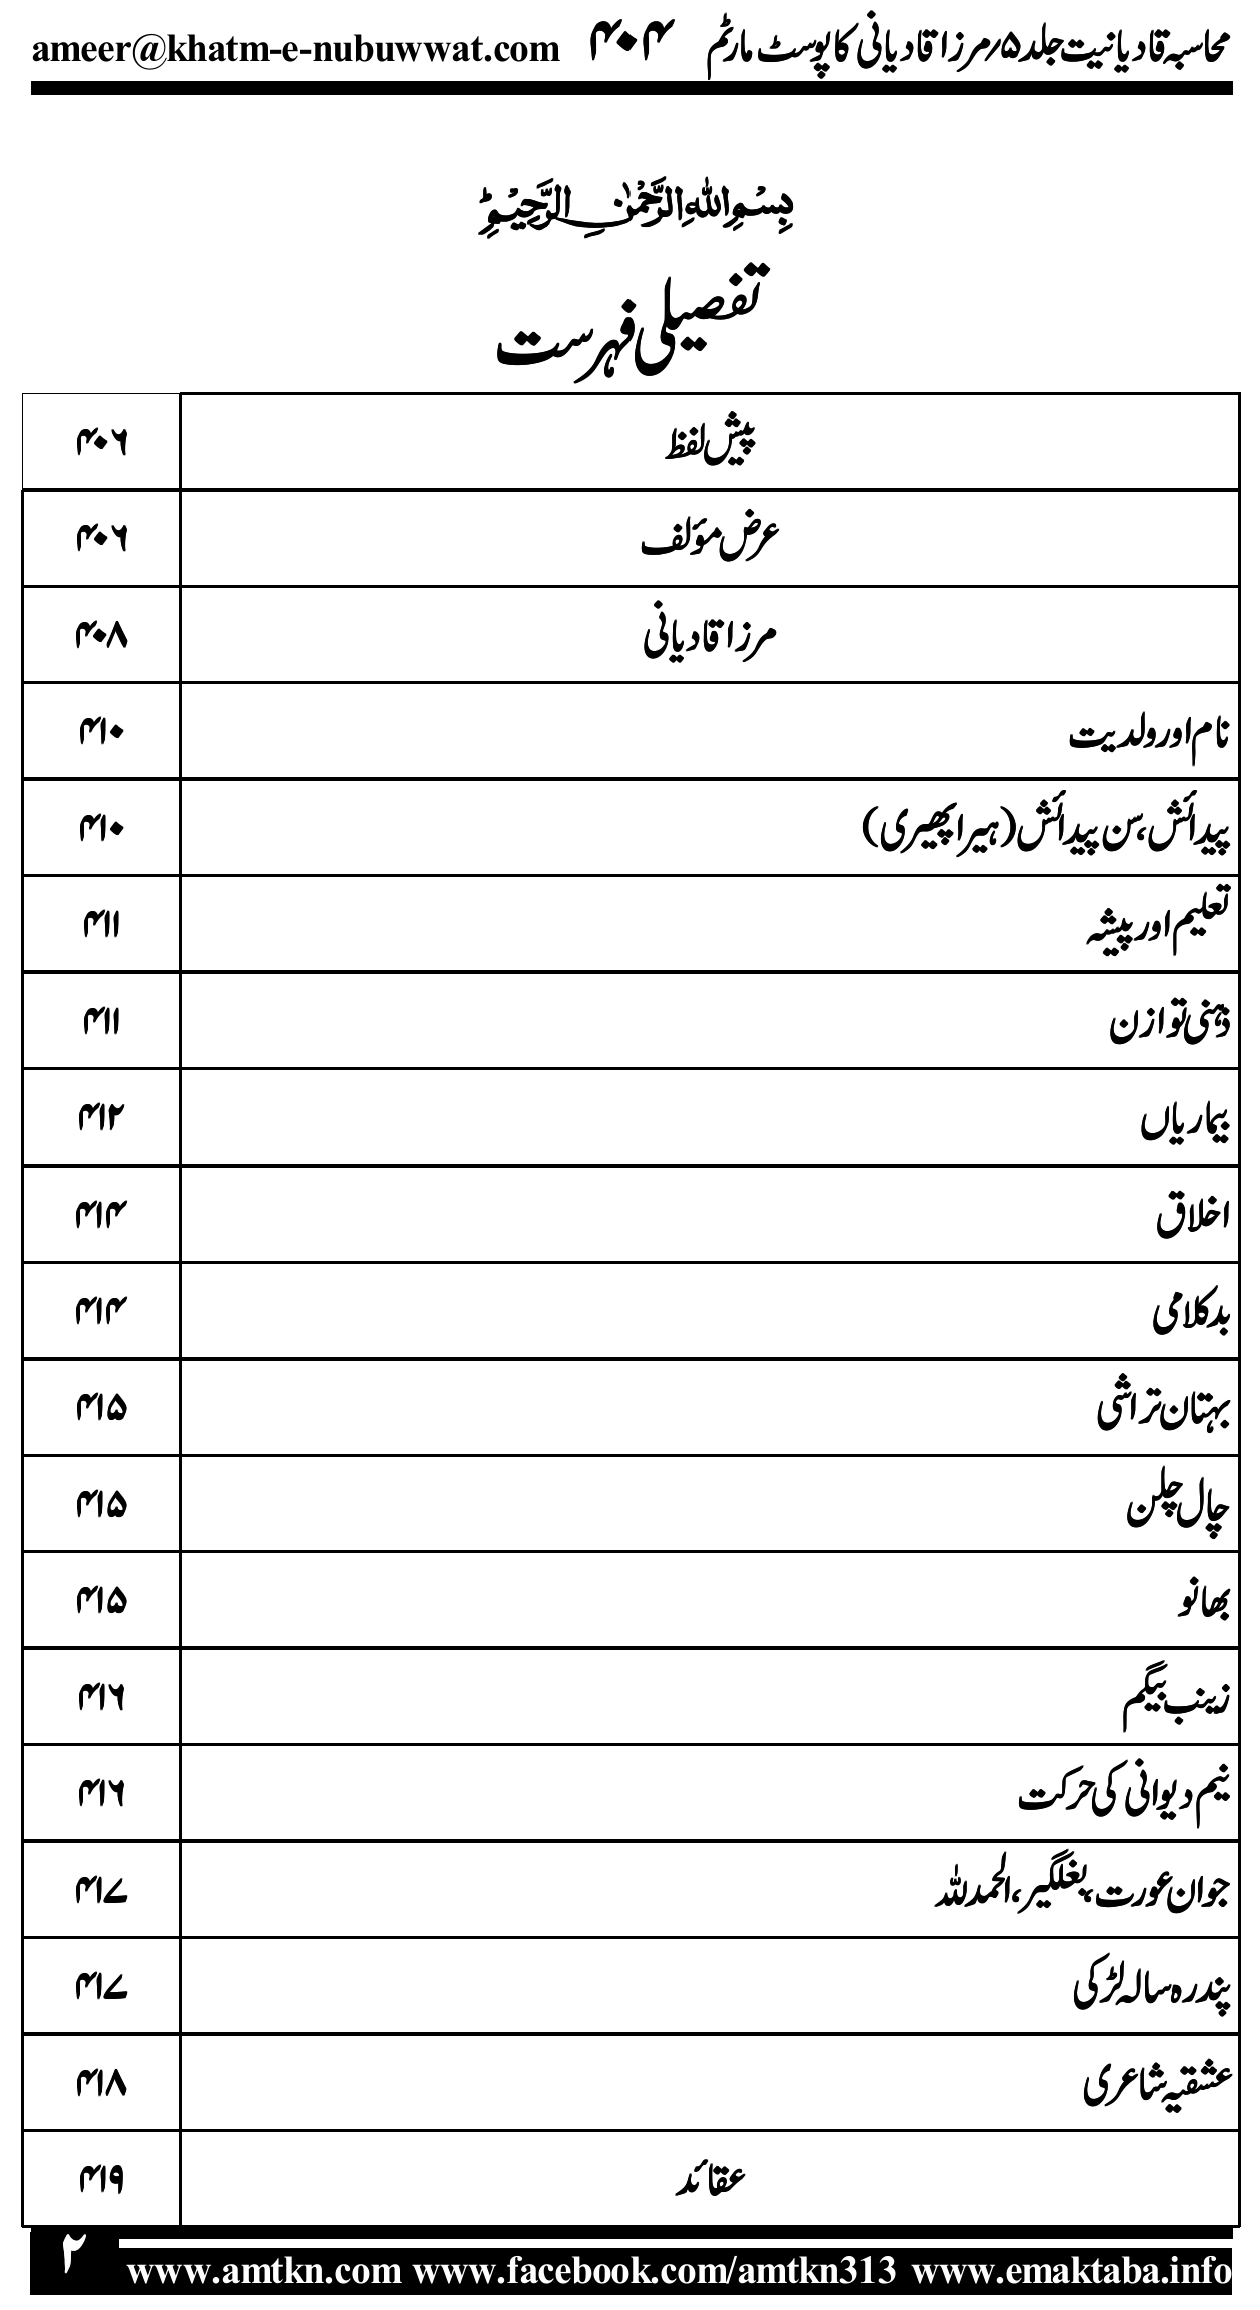 محاسبہ قادیانیت جلد ۵/مرزا قادیانی کا پوسٹ مارٹم ۴۰۴ ameer@khatm-e-nubuwwat.com
بِسْمِ اللهِ الرَّحْمٰنِ الرَّحِيْمِ
تفصیلی فہرست
پیش لفظ ۴۰۶
عرض مؤلف ۴۰۶
مرزا قادیانی ۴۰۸
نام اور ولدیت ۴۱۰
پیدائش، سن پیدائش (ہیرا پھیری) ۴۱۰
تعلیم اور پیشہ ۴۱۱
ذہنی توازن ۴۱۱
بیماریاں ۴۱۲
اخلاق ۴۱۴
بدکلامی ۴۱۴
بہتان تراشی ۴۱۵
چال چلن ۴۱۵
بھانو ۴۱۵
زینب بیگم ۴۱۶
نیم دیوانی کی حرکت ۴۱۶
جوان عورت، بغلگیر، الحمدللہ ۴۱۷
پندرہ سالہ لڑکی ۴۱۷
عشقیہ شاعری ۴۱۸
عقائد ۴۱۹
۲
www.amtkn.com www.facebook.com/amtkn313 www.emaktaba.info